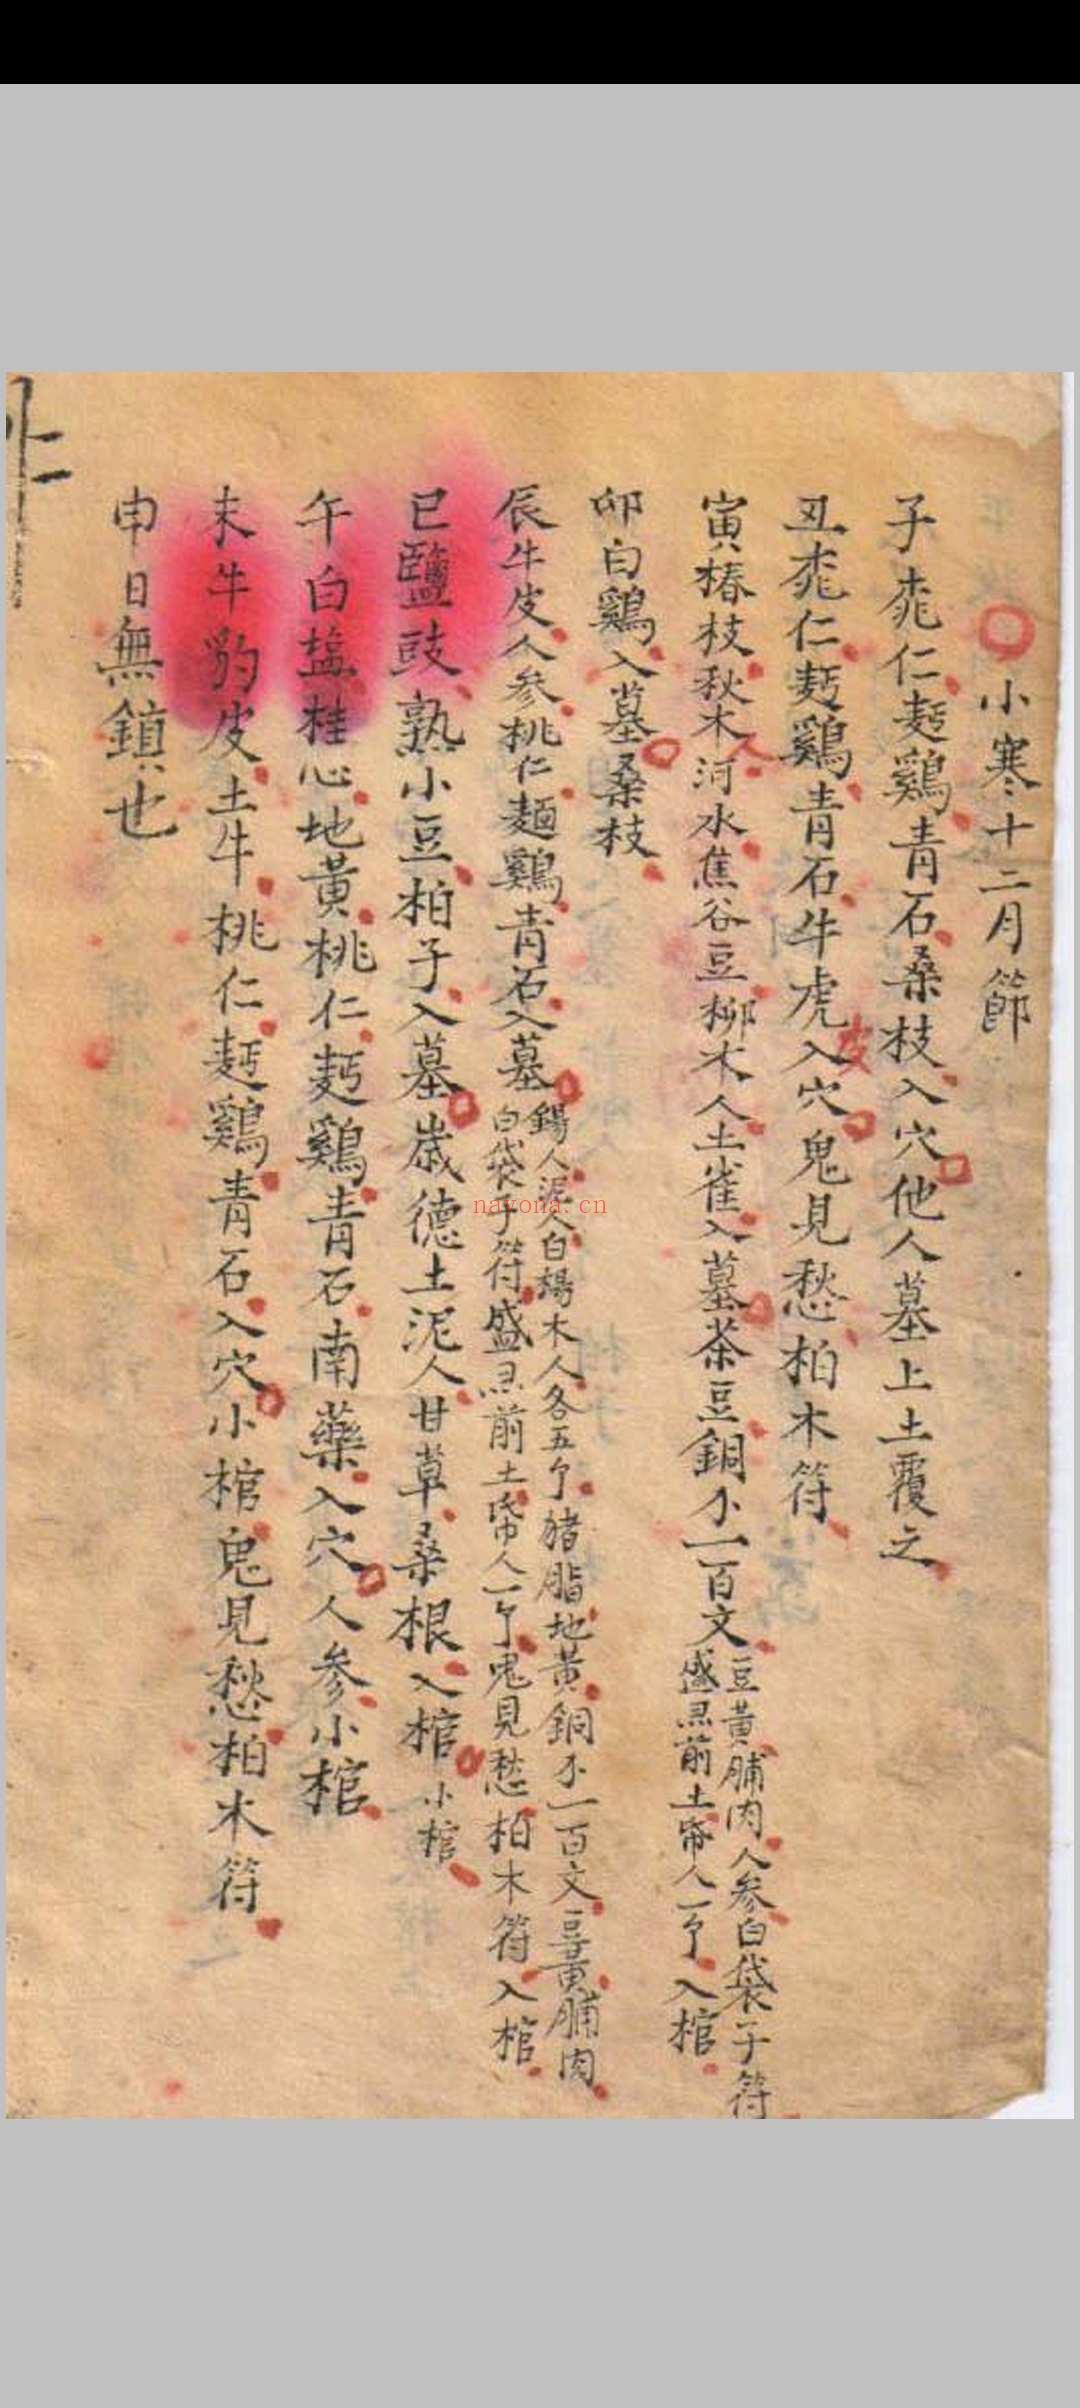 小寒十二月節
子桃仁麪鷄青石桑枝入穴他人墓上土覆之
丑桃仁麪鷄青石牛虎皮入穴鬼見愁柏木符
寅椿枝秋木人河水焦谷豆柳木人土雀入墓茶豆銅小一百文
豆黃脯肉人參白袋子符
盛灵前土帝人一个入棺
卯白鷄入墓桑枝
辰牛皮人参桃仁麺鷄青石入墓
錫人泥人白楊木人各五个猪脂地黃銅小一百文豆黃脯肉
白袋子符盛灵前土帝人一个鬼見愁柏木符入棺
巳鹽豉熟小豆柏子入墓歲德土泥人甘草桑根入棺小棺
午白塩桂心地黃桃仁麪鷄青石南藥入穴人参小棺
未牛豹皮土牛桃仁麪鷄青石入穴小棺鬼見愁柏木符
申日無鎮也
nayona.cn